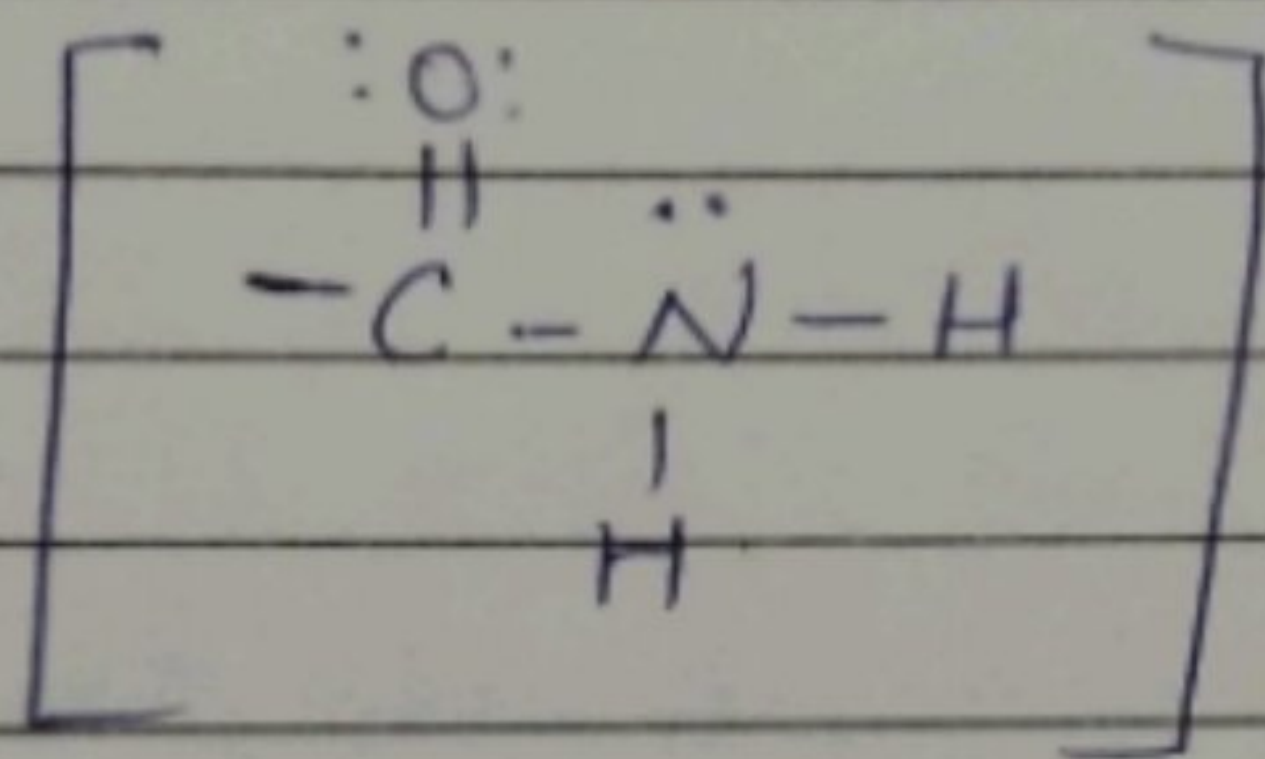 :O:
||
- C - N̈ - H
|
H